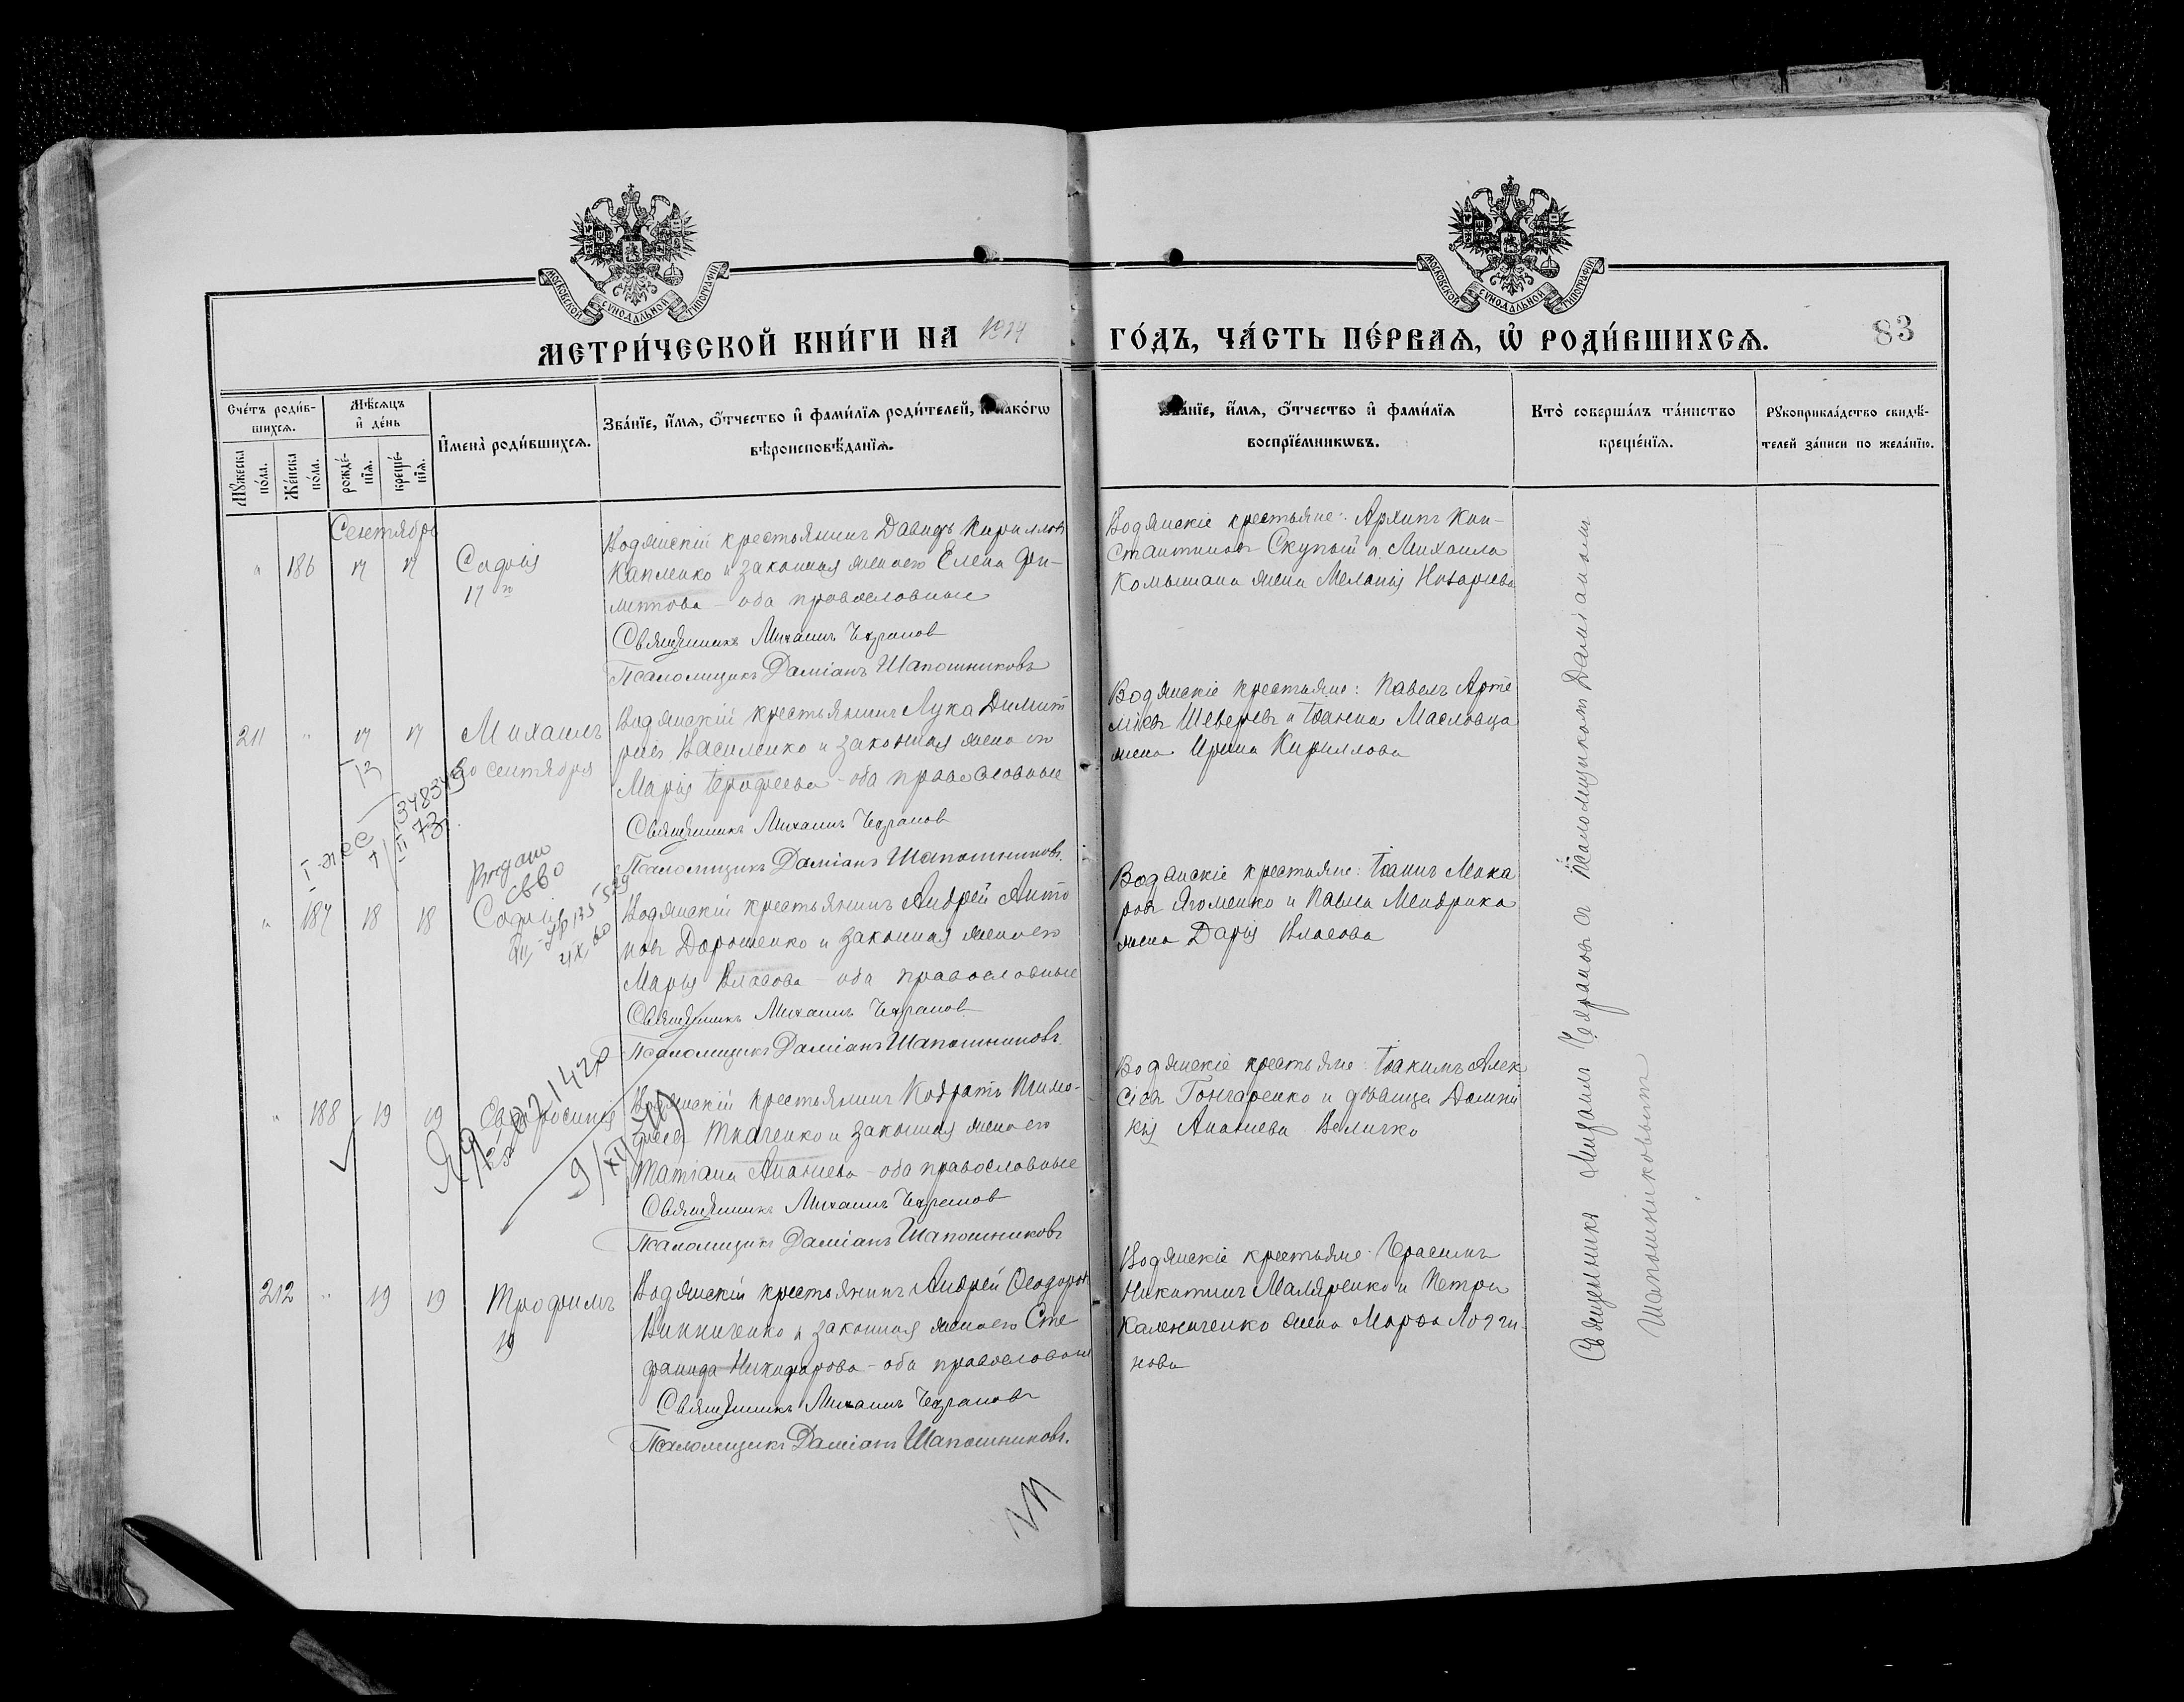 МОСКОВСКОЙ СѴНОДАЛЬНОЙ ТИПОГРАФІИ
МОСКОВСКОЙ СѴНОДАЛЬНОЙ ТИПОГРАФІИ
МЕТРИ́ЧЕСКОЙ КНИ́ГИ НА 1914
ГО́ДЪ, ЧА́СТЬ ПЕ́РВАЯ, Ѡ РОДИ́ВШИХСЯ.
83
Сче́тъ роди́в-
шихся.
Мѣ́сяцъ
и де́нь
Му́жеска
по́ла.
Же́нска
по́ла.
рожде́-
нїя.
креще́-
нїя.
И҆мена̀ роди́вшихся.
Зва́нїе, и҆́мя, ѻ҆́тчество и҆ фами́лїя роди́телей, и҆ како́гѡ
вѣроисповѣ́данїя.
Зва́нїе, и҆́мя, ѻ҆́тчество и҆ фами́лїя
воспрїе́мникѡвъ.
Кто̀ соверша́лъ та́инство
креще́нїя.
Рукоприкла́дство свидѣ́-
телей за́писи по жела́нїю.
Сентябрь
" 186 17 17 Софія
17
Водянскій крестьянинъ Давидъ Кириллов
Капленко и законная жена его Елена Фи-
липпова - оба православные
Священникъ Михаилъ
Псаломщикъ Даміанъ Шапошниковъ
Водянскіе крестьяне: Архипъ Кон-
стантиновъ Скупый и Михаила
Комышана жена Меланія Назарьева
211 " 17 17 Михаилъ
30 сентября
Водянскій крестьянинъ Лука Димит
ріевъ Василенко и законная жена его
Марія Ерофеева - оба православные
Священникъ Михаилъ
Псаломщикъ Даміанъ Шапошниковъ.
Водянскіе крестьяне: Павелъ Арте
міевъ Шеверевъ и Іоанна Масловца
жена Ирина Кириллова
" 187 18 18 Софія
Водянскій крестьянинъ Андрей Анто
новъ Дорошенко и законная жена его
Марія Власова - оба православные
Священникъ Михаилъ
Псаломщикъ Даміанъ Шапошниковъ.
Водянскіе крестьяне: Іоаннъ Мака
ровъ Ягоменко и Павла Мендрика
жена Дарія Власова
" 188 19 19 Евфросинія
25
Водянскій крестьянинъ Кодратъ Тимо-
феевъ Ткаченко и законная жена его
Татіана Ананіева - оба православные
Священникъ Михаилъ
Псаломщикъ Даміанъ Шапошниковъ
Водянскіе крестьяне: Іоакимъ Алек
сіевъ Гончаренко и дѣвица Домни
кія Ананіева Величко
212 " 19 19 Трофимъ
19
Водянскій крестьянинъ Андрей Ѳеодоров
Винниченко и законная жена его Сте
фанида Никифорова - оба православные
Священникъ Михаилъ
Псаломщикъ Даміанъ Шапошниковъ.
Водянскіе крестьяне: Герасимъ
Никитинъ Маляренко и Петра
Калениченко жена Марѳа Логги-
нова
Священникъ Михаилъ съ псаломщикомъ Даміаномъ
Шапошниковымъ